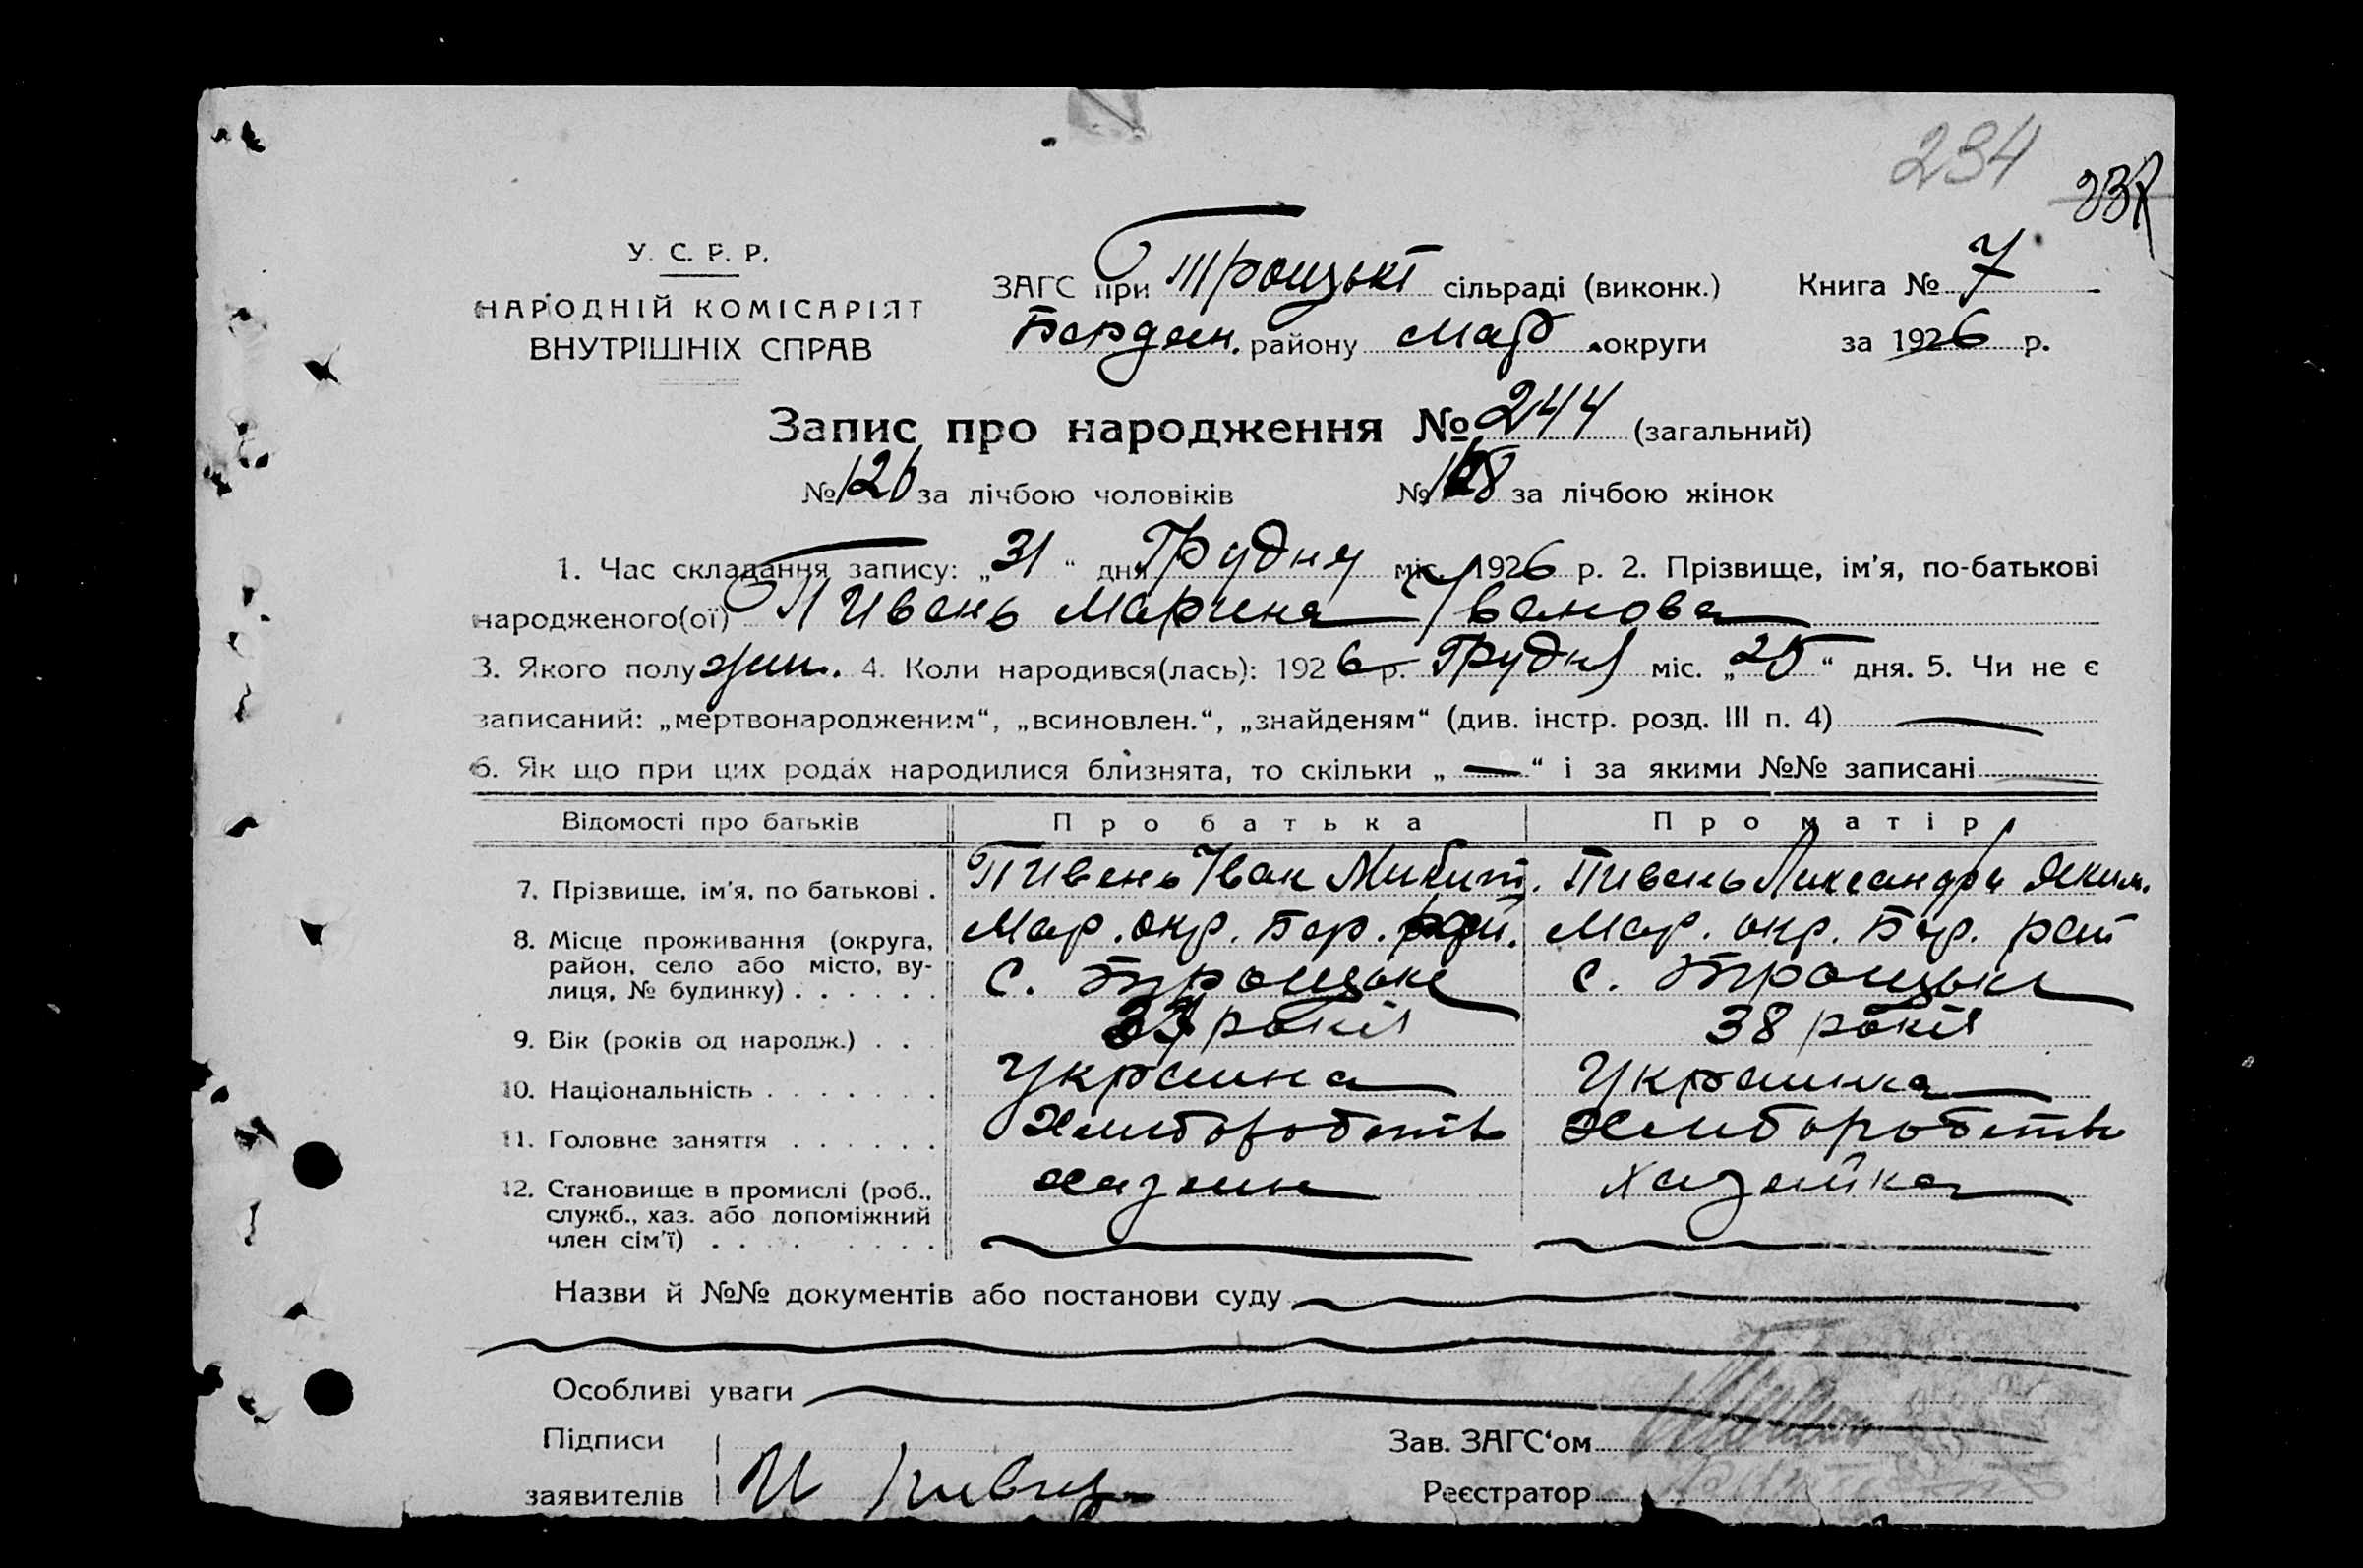 234
У. С. Р. Р.
НАРОДНІЙ КОМІСАРІЯТ
ВНУТРІШНІХ СПРАВ
ЗАГС при Троцькі сільраді (виконк.) Книга № 7
Бердян. району Мар округи за 1926 р.
Запис про народження № 244 (загальний)
№ 126 за лічбою чоловіків № 118 за лічбою жінок
1. Час складання запису: „31“ дня Грудня міс. 1926 р. 2. Прізвище, ім'я, по-батькові
народженого(ої) Пивень Марина Іванова
3. Якого полу жин. 4. Коли народився(лась): 1926 р. Грудня міс. „25“ дня. 5. Чи не є
записаний: „мертвонародженим“, „всиновлен.“, „знайденям“ (див. інстр. розд. III п. 4)
6. Як що при цих родах народилися близнята, то скільки „—“ і за якими №№ записані
Відомості про батьків Про батька Про матір
7. Прізвище, ім'я, по батькові . Пивень Іван Микит. Пивень Ликсандра Яким.
8. Місце проживання (округа, район, село або місто, вулиця, № будинку) . . . . . . Мар. окр. Бер. рай. Мар. окр. Бер. рай
с. Троцьке с. Троцьке
9. Вік (років од народж.) . . . років 38 років
10. Національність . . . . . . . Украина Украинка
11. Головне заняття . . . . . . Хлиборобств Хлиборобств
12. Становище в промислі (роб., служб., хаз. або допоміжний член сім'ї) . . . . . . . . Хазяин Хазяйка
Назви й №№ документів або постанови суду
Особливі уваги
Підписи Зав. ЗАГС‘ом
заявителів И Пивень Реєстратор